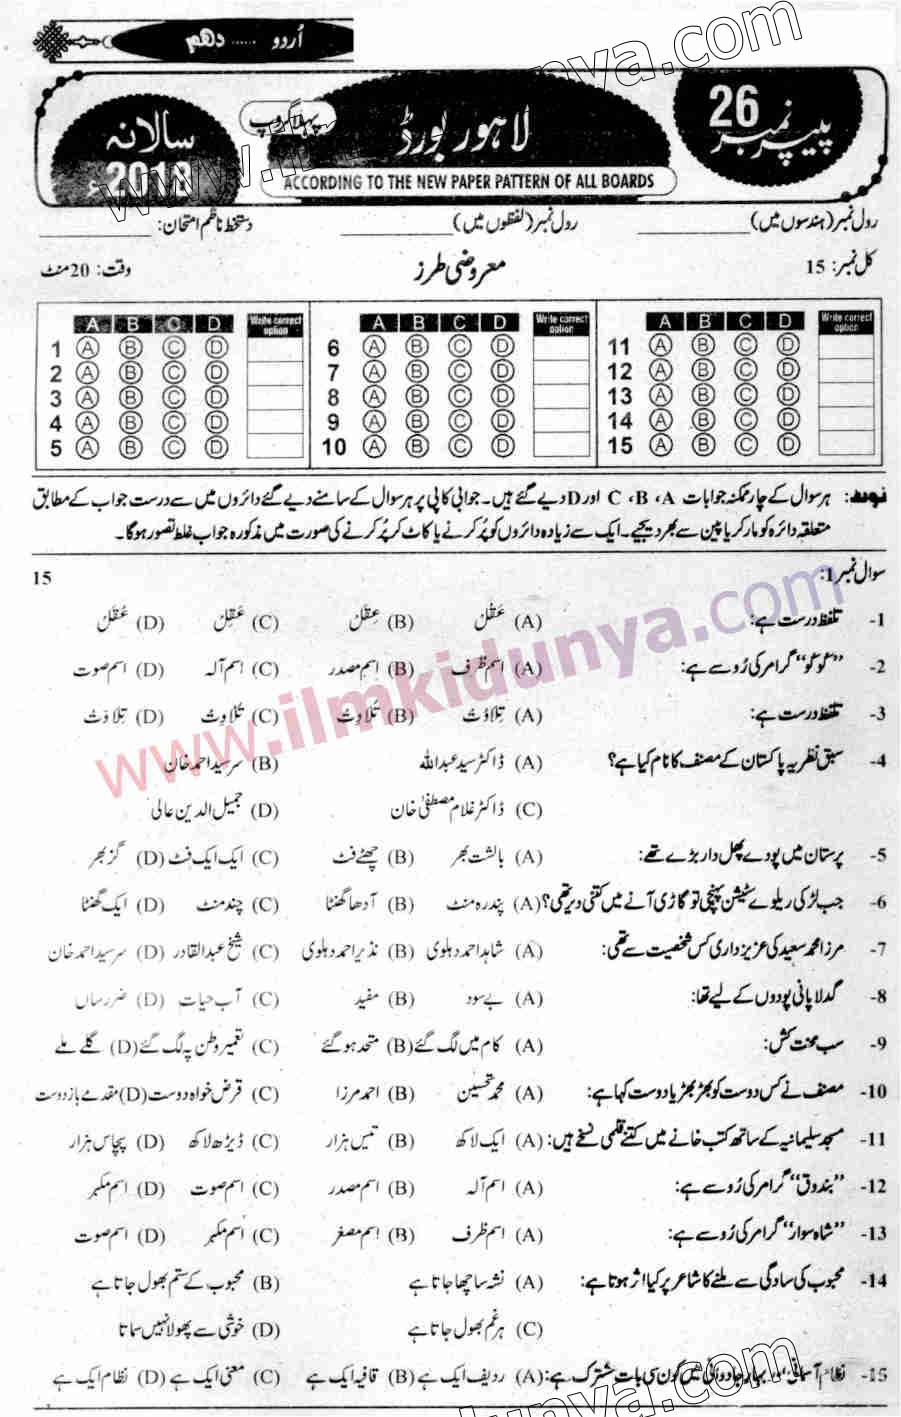 اُردو ...... دہم
پیپر نمبر 26
لاہور بورڈ
پہلا گروپ
سالانہ 2018ء
ACCORDING TO THE NEW PAPER PATTERN OF ALL BOARDS
رول نمبر (ہندسوں میں) ____________ رول نمبر (لفظوں میں) ____________ دستخط ناظم امتحان: ____________
کل نمبر: 15 معروضی طرز وقت: 20 منٹ
A B C D Write correct option A B C D Write correct option A B C D Write correct option
1 A B C D 6 A B C D 11 A B C D
2 A B C D 7 A B C D 12 A B C D
3 A B C D 8 A B C D 13 A B C D
4 A B C D 9 A B C D 14 A B C D
5 A B C D 10 A B C D 15 A B C D
نوٹ: ہر سوال کے چار ممکنہ جوابات A ، B ، C اور D دیے گئے ہیں۔ جوابی کاپی پر ہر سوال کے سامنے دیے گئے دائروں میں سے درست جواب کے مطابق
متعلقہ دائرہ کو مارکر یا پین سے بھر دیجیے۔ ایک سے زیادہ دائروں کو پُر کرنے یا کاٹ کر پُر کرنے کی صورت میں مذکورہ جواب غلط تصور ہوگا۔
سوال نمبر 1: 15
1- تلفظ درست ہے: (A) عَقْل (B) عِقل (C) عَقِل (D) عُقل
2- ”گوگو“ گرامر کی رُو سے ہے: (A) اسم ظرف (B) اسم مصدر (C) اسم آلہ (D) اسم صوت
3- تلفظ درست ہے: (A) تِلاوُت (B) تَلاوِت (C) تُلاوِت (D) تِلاوَت
4- سبق نظریہ پاکستان کے مصنف کا نام کیا ہے؟ (A) ڈاکٹر سید عبداللہ (B) سر سید احمد خان
(C) ڈاکٹر غلام مصطفیٰ خان (D) جمیل الدین عالی
5- پرستان میں پودے پھل دار بڑے تھے: (A) بالشت بھر (B) چھٹے فٹ (C) ایک ایک فٹ (D) گز بھر
6- جب لڑکی ریلوے سٹیشن پہنچی تو گاڑی آنے میں کتنی دیر تھی؟ (A) پندرہ منٹ (B) آدھا گھنٹا (C) چند منٹ (D) ایک گھنٹا
7- مرزا محمد سعید کی عزیز داری کس شخصیت سے تھی: (A) شاہد احمد دہلوی (B) نذیر احمد دہلوی (C) شیخ عبدالقادر (D) سر سید احمد خان
8- گدلا پانی پودوں کے لیے تھا: (A) بے سود (B) مفید (C) آب حیات (D) ضرر رساں
9- سب محنت کش: (A) کام میں لگ گئے (B) متحد ہو گئے (C) تعمیر وطن پہ لگ گئے (D) گلے ملے
10- مصنف نے کس دوست کو بھڑ بھڑیا دوست کہا ہے: (A) محمد تحسین (B) احمد مرزا (C) قرض خواہ دوست (D) مقدمے باز دوست
11- مسجد سلیمانیہ کے ساتھ کتب خانے میں کتنے قلمی نسخے ہیں: (A) ایک لاکھ (B) تیس ہزار (C) ڈیڑھ لاکھ (D) پچاس ہزار
12- ”بندوق“ گرامر کی رُو سے ہے: (A) اسم آلہ (B) اسم مصدر (C) اسم صوت (D) اسم مکبر
13- ”شاہ سوار“ گرامر کی رُو سے ہے: (A) اسم ظرف (B) اسم مصغر (C) اسم مکبر (D) اسم صوت
14- محبوب کی سادگی سے ملنے کا شاعر پر کیا اثر ہوتا ہے: (A) نشہ سا چھا جاتا ہے (B) محبوب کے ستم بھول جاتا ہے
(C) ہر غم بھول جاتا ہے (D) خوشی سے پھولا نہیں سماتا
15- نظام آسمانی، بہار جاودانی میں کون سی بات مشترک ہے: (A) ردیف ایک ہے (B) قافیہ ایک ہے (C) معنی ایک ہے (D) نظام ایک ہے
www.ilmkidunya.com